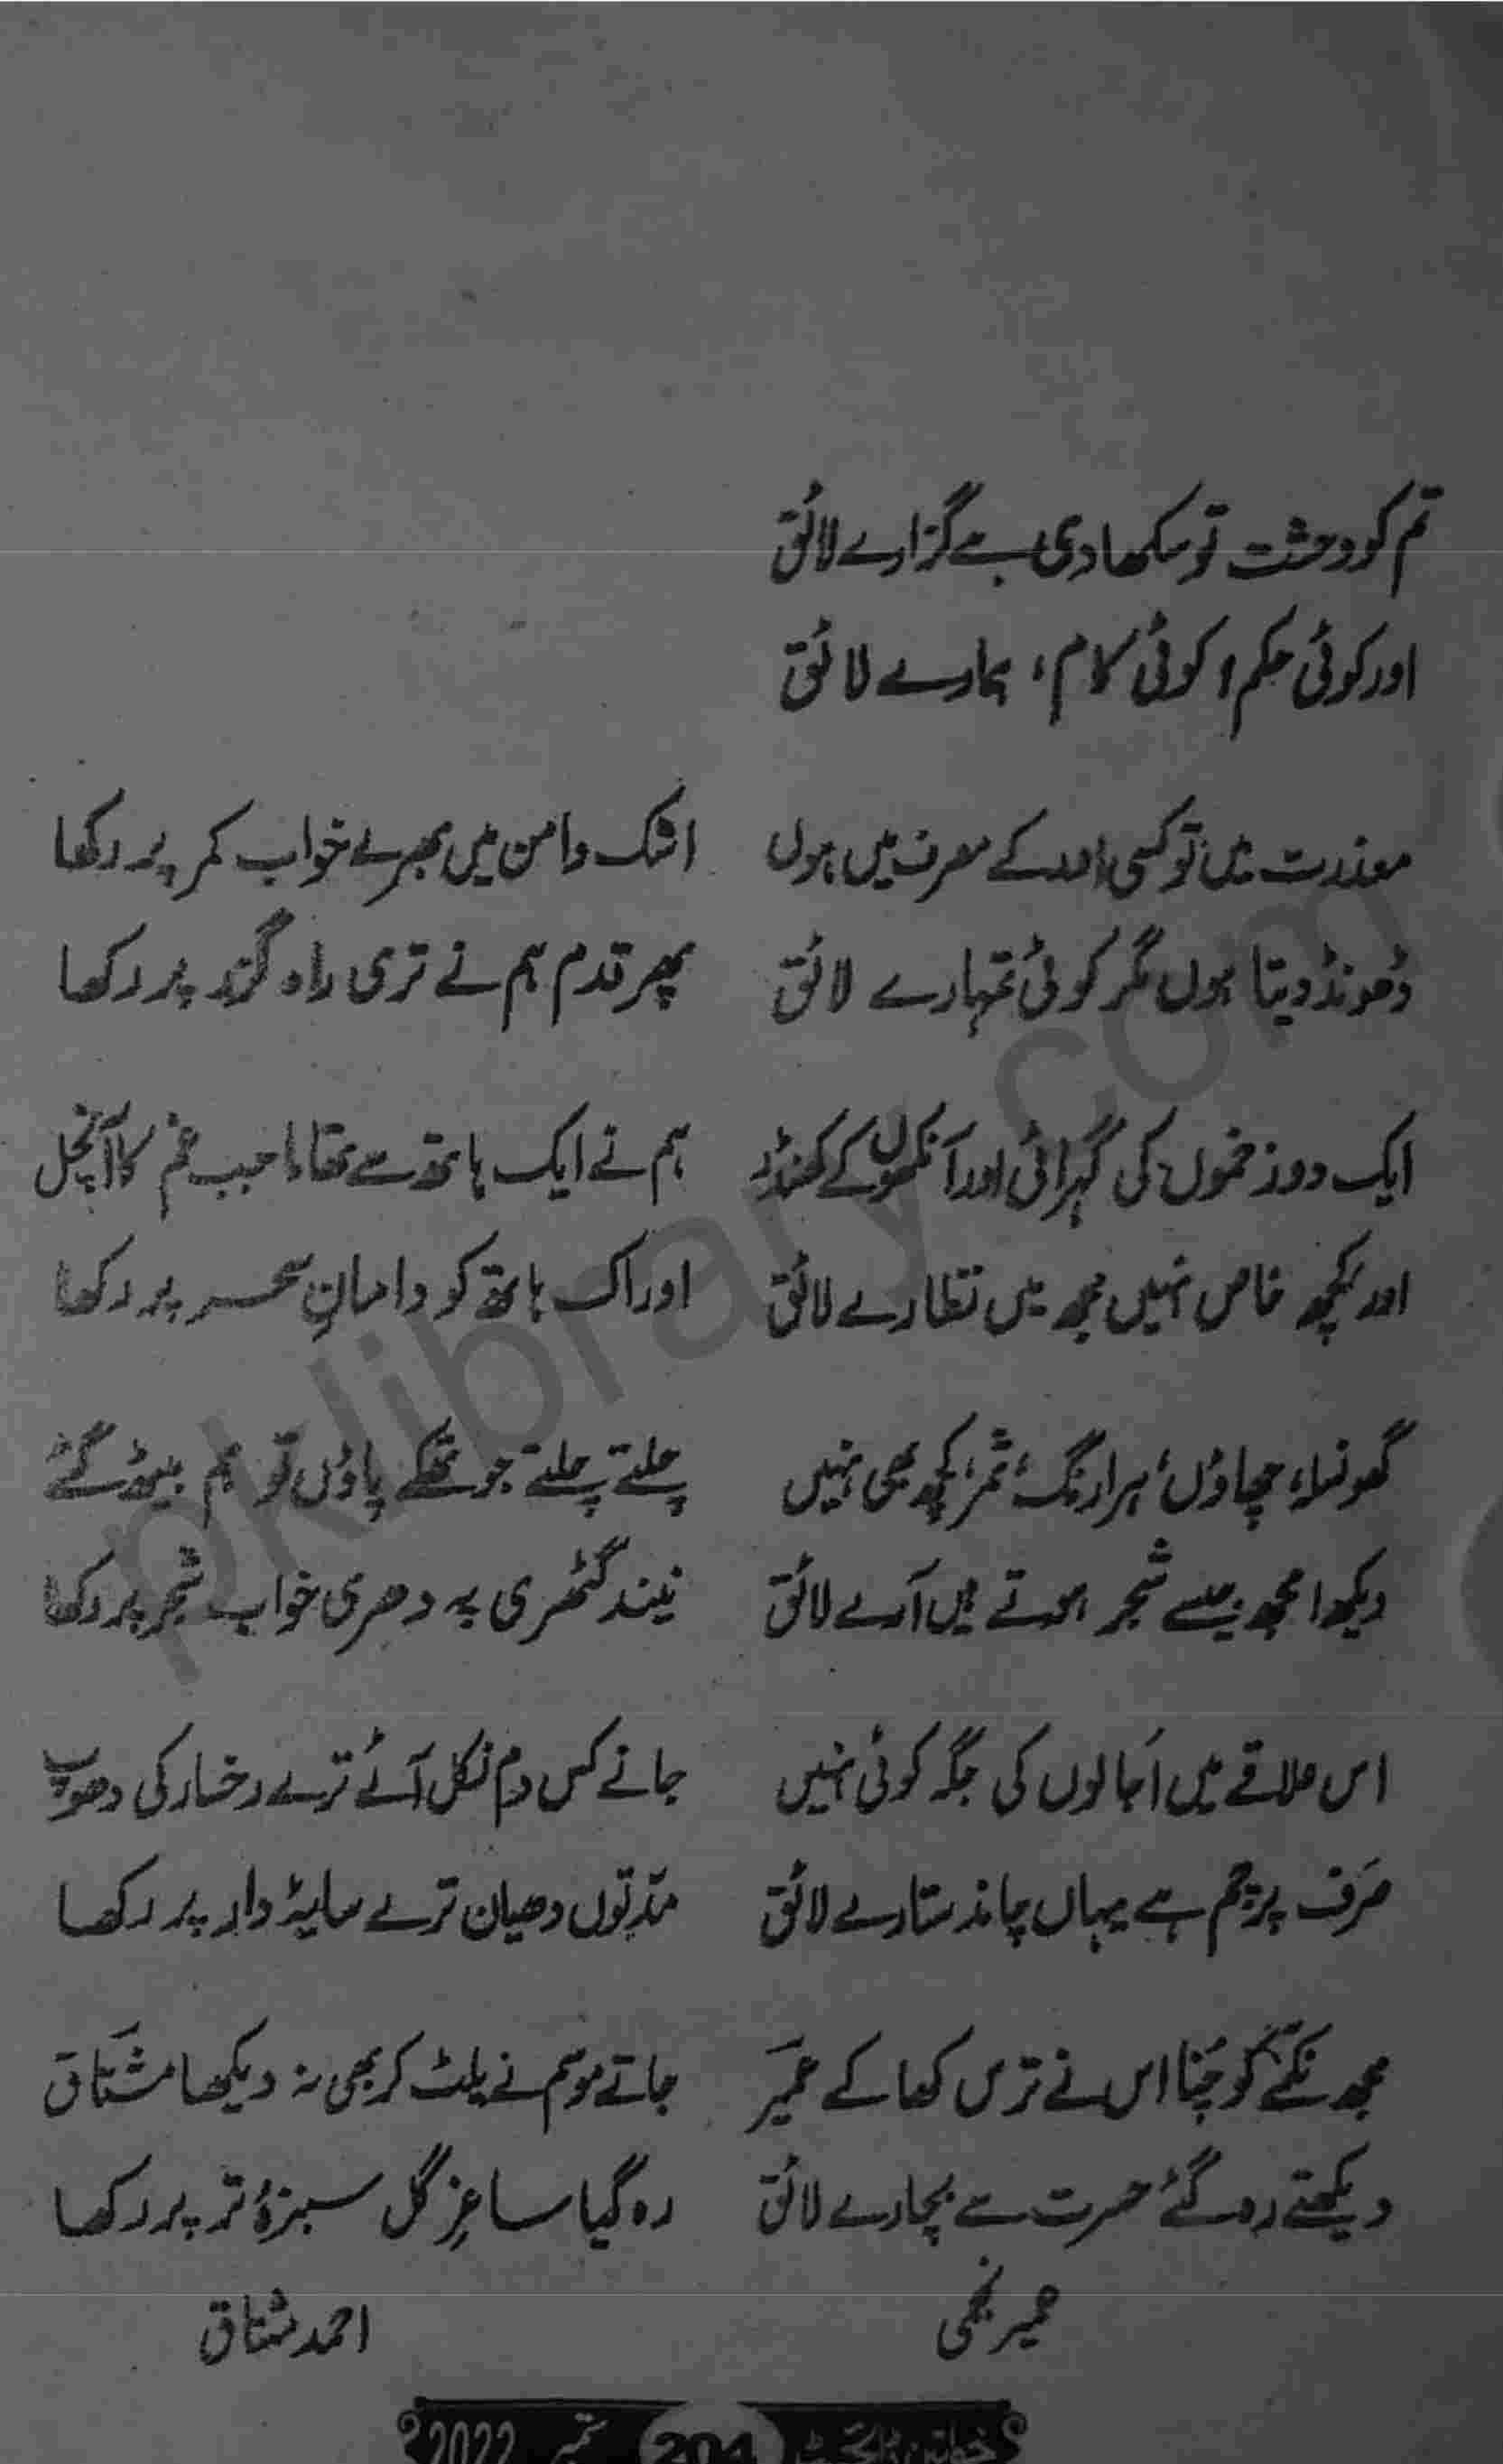 تم کو وحشت تو سکھا دی ہے گزارے لائق
اور کوئی حکم، کوئی کام، ہمارے لائق
معذرت میں تو کسی اور کے مصرف میں ہوں
ڈھونڈ دیتا ہوں مگر کوئی تمہارے لائق
ایک دو زخموں کی گہرائی اور آنکھوں کے کھنڈر
اور کچھ خاص نہیں مجھ میں نظارے لائق
گھونسلا، چھاؤں، ہرا رنگ، ثمر، کچھ بھی نہیں
دیکھ! مجھ جیسے شجر ہوتے ہیں آرے لائق
اس علاقے میں اُجالوں کی جگہ کوئی نہیں
صَرف پرچم ہے یہاں چاند ستارے لائق
مجھ نکمّے کو چُنا اس نے ترس کھا کے عمیرؔ
دیکھتے رہ گئے حسرت سے بچارے لائق
عمیر نجمی
اشک دامن میں بھرے خواب کمر پر رکھا
پھر قدم ہم نے تری راہ گزر پر رکھا
ہم نے ایک ہاتھ سے تھاما جب غم کا آنچل
اور اک ہاتھ کو دامانِ سحر پر رکھا
چلتے چلتے جو تھکے پاؤں تو ہم بیٹھ گئے
نیند گٹھری پہ دھری خواب شجر پر رکھا
جانے کس دم نکل آئے ترے رخسار کی دھوپ
مدّتوں دھیان ترے سایۂ دار پر رکھا
جاتے موسم نے پلٹ کر بھی نہ دیکھا مشتاقؔ
رہ گیا ساغرِ گل سبزۂ تر پر رکھا
احمد مشتاق
خواتین ڈائجسٹ 204 ستمبر 2022
pklibrary.com